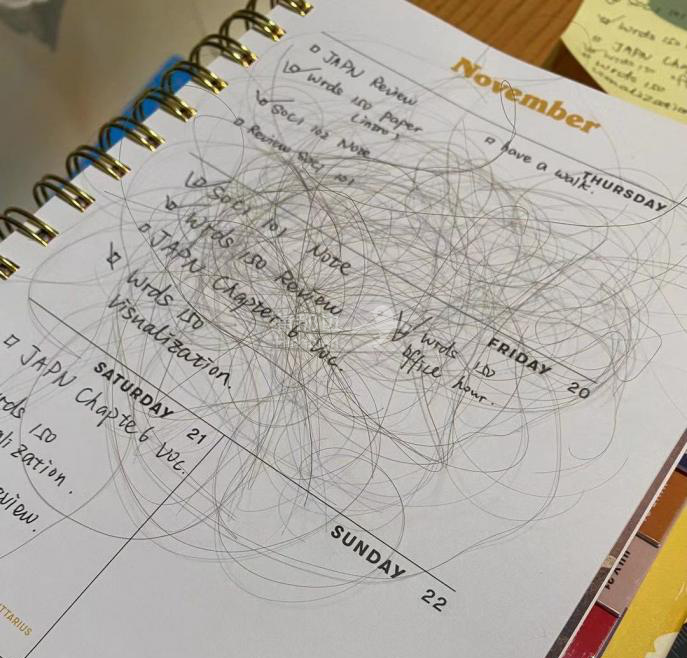 November
□ JAPN Review
☑ Wrds 150 paper
(intro)
☑ Soci 102 Note
□ Review Soci 101
□ have a walk.
THURSDAY
☑ Soci 101 Note
☑ Wrds 150 Review
□ JAPN Chapter 6 voc.
☑ Wrds 150
Visualization.
☑ Wrds 150
office hour.
FRIDAY 20
□ JAPN Chapte 6 voc.
150
SATURDAY 21
SUNDAY 22
wrds 150
JAPN
wrds 150